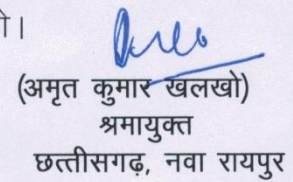 ो।
(अमृत कुमार खलखो)
श्रमायुक्त
छत्तीसगढ़, नवा रायपुर